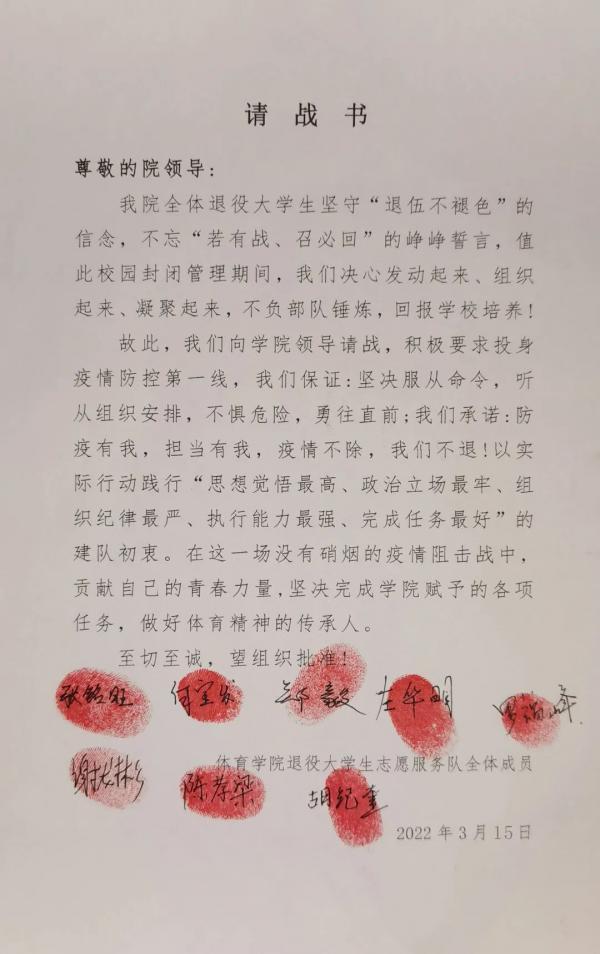 请战书
尊敬的院领导:
我院全体退役大学生坚守“退伍不褪色”的
信念，不忘“若有战、召必回”的铮铮誓言，值
此校园封闭管理期间，我们决心发动起来、组织
起来、凝聚起来，不负部队锤炼，回报学校培养!
故此，我们向学院领导请战，积极要求投身
疫情防控第一线，我们保证:坚决服从命令，听
从组织安排，不惧危险，勇往直前;我们承诺:防
疫有我，担当有我，疫情不除，我们不退!以实
际行动践行“思想觉悟最高、政治立场最牢、组
织纪律最严、执行能力最强、完成任务最好”的
建队初衷。在这一场没有硝烟的疫情阻击战中，
贡献自己的青春力量,坚决完成学院赋予的各项
任务，做好体育精神的传承人。
至切至诚，望组织批准!
左华明
体育学院退役大学生志愿服务队全体成员
陈孝梁
2022年3月15日